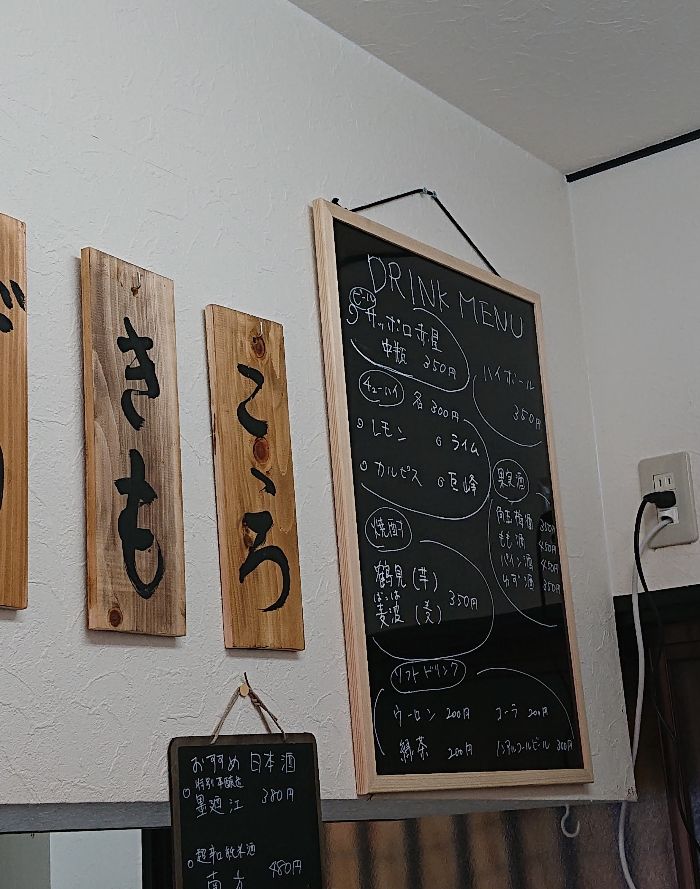 きも
こころ
DRINK MENU
ビール
サッポロ赤星
中瓶 350円
ハイボール
350円
チューハイ 各300円
レモン ライム
カルピス 巨峰
果実酒
梅酒 350円
もも酒 450円
パイン酒 450円
ゆず酒 350円
焼酎
鶴見(芋)
ぱっぱ 350円
麦波(麦)
ソフトドリンク
ウーロン 200円 コーラ 200円
緑茶 200円 ノンアルコールビール 300円
おすすめ 日本酒
特別本醸造
墨廼江 380円
超辛口純米酒
南方 480円